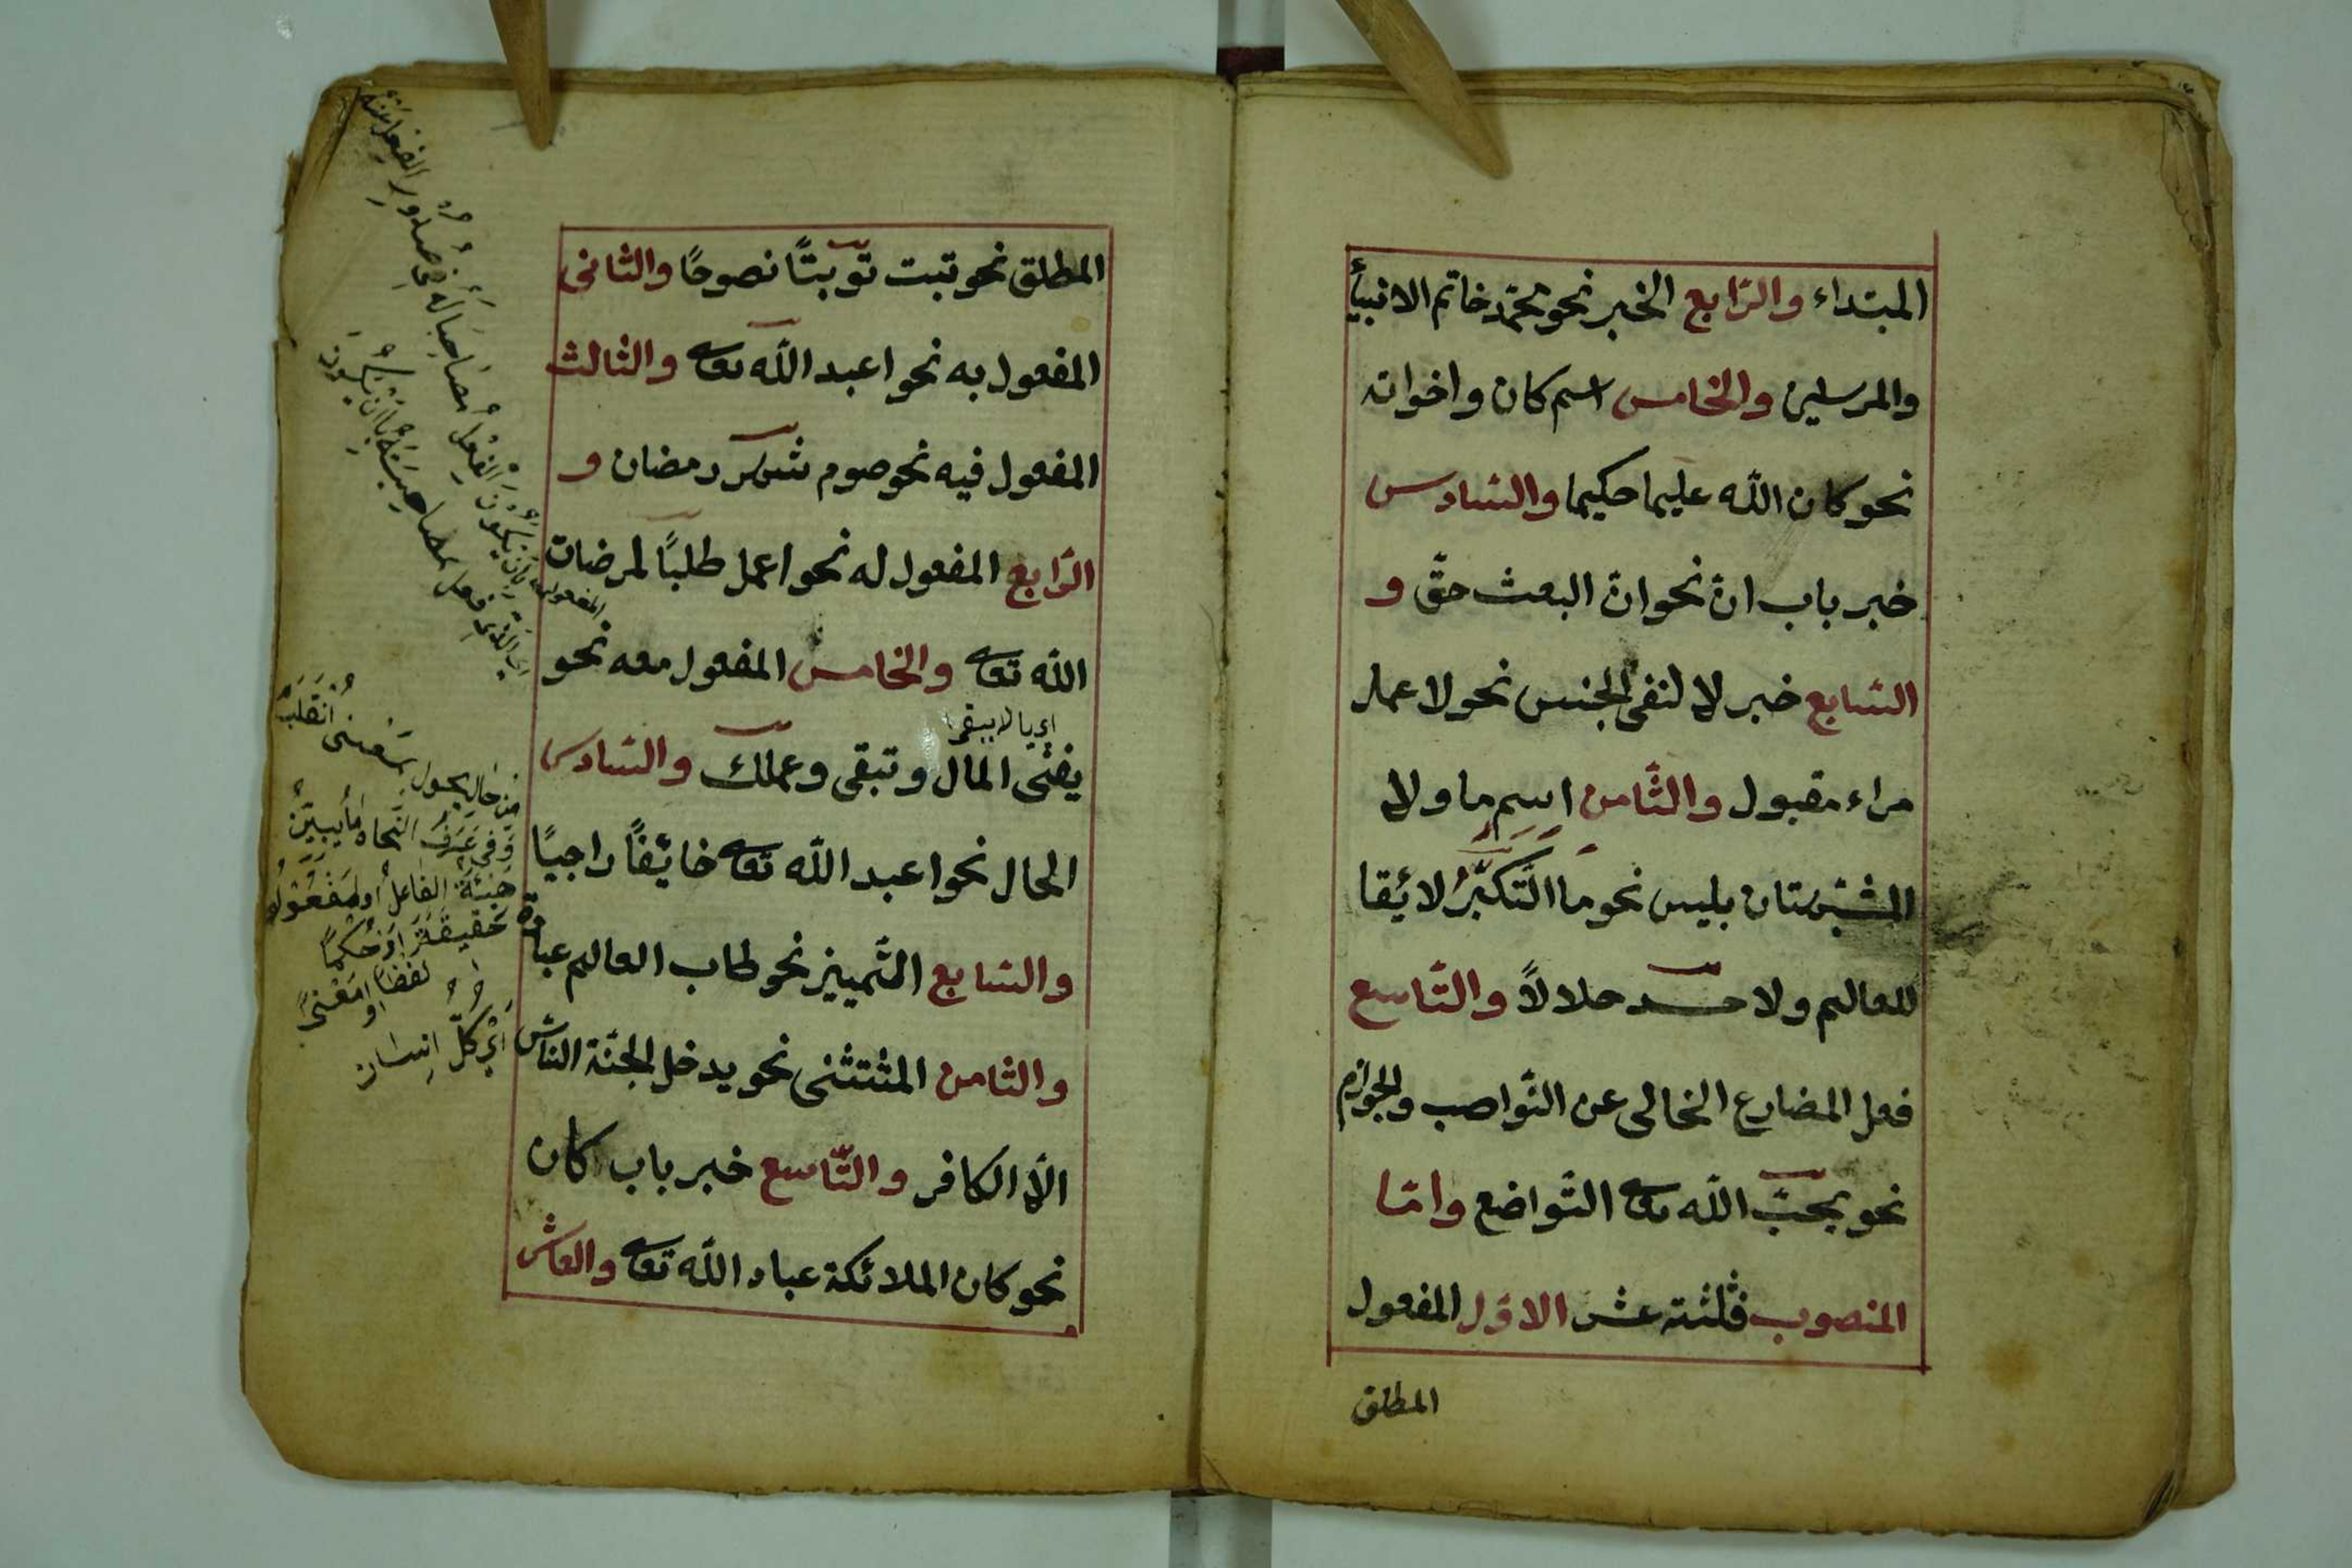 المبتداء والرّابع الخبر نحو محمّد خاتم الانبيأ
والمرسلين والخامس اسم كان واخواته
نحو كان اللّه عليما حكيما والسّادس
خبر باب انّ نحو انّ البعث حقّ و
السّابع خبر لا لنفى الجنس نحو لا عمل
مراء مقبول والثّامن اسم ما ولا
المشبّهتان بليس نحو ما التّكبّر لائقا
للعالم ولا حسد حلالاً والتّاسع
فعل المضارع الخالى عن النّواصب والجوازم
نحو يحبّ اللّه تعا التّواضع وامّا
المنصوب فثلثة عشر الاوّل المفعول
المطلق
المطلق نحو تبت توبتًا نصوحًا والثانى
المفعول به نحو اعبد اللّه تعا والثالث
المفعول فيه نحو صوم شهر رمضان و
الرّابع المفعول له نحو اعمل طلبًا لمرضات
اللّه تعا والخامس المفعول معه نحو
يفنى المال وتبقى وعملك والسّادس
الحال نحو اعبد اللّه تعا خائفًا راجيًا
والسّابع التّمييز نحو طاب العالم عبادة
والثّامن المثتثنى نحو يدخل الجنّة النّاس
الّا الكافر والتّاسع خبر باب كان
نحو كان الملائكة عباد اللّه تعا والعاشر
من حال يحول بمعنى انقلب
وفى عرف النحاة ما يبيّن
الفاعل او المفعول
او حكمًا
لفظا او معنى
اى كلّ انسان